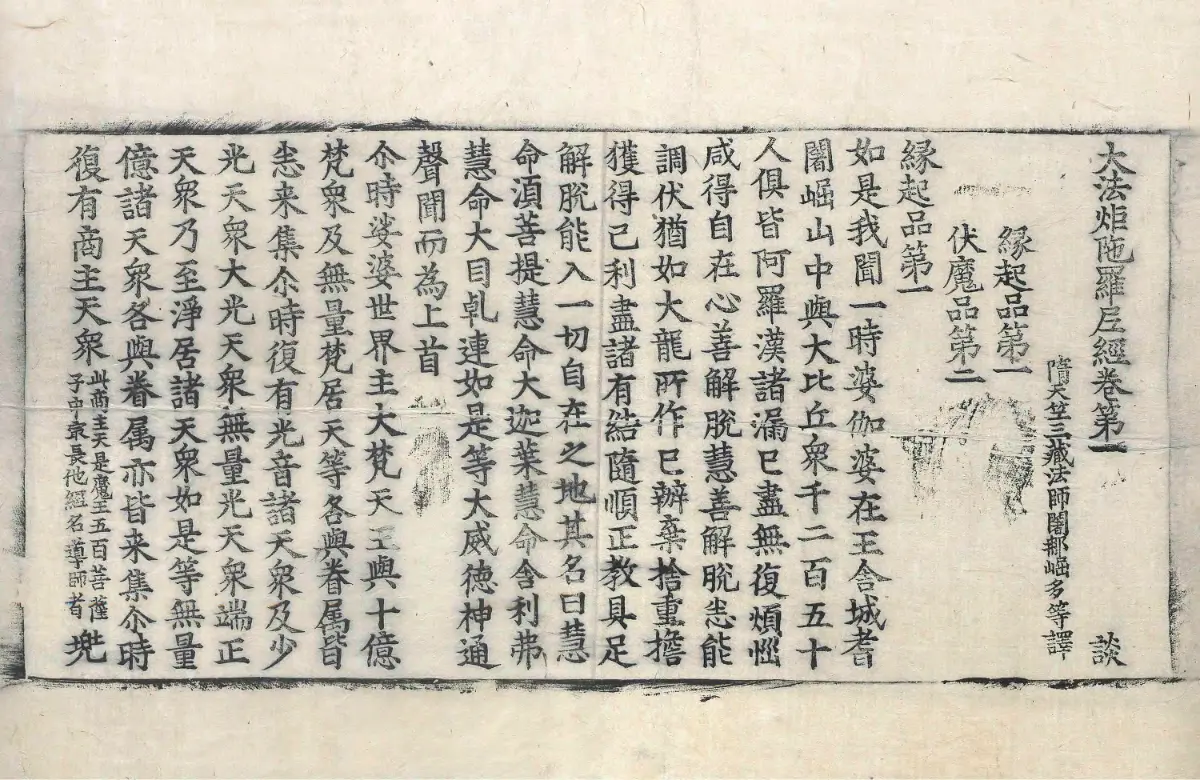 大法炬陁羅尼經卷第一 談
隋天竺三藏法師闍那崛多等譯
緣起品第一
伏魔品第二
緣起品第一
如是我聞一時婆伽婆在王舍城耆
闍崛山中與大比丘衆千二百五十
人俱皆阿羅漢諸漏已盡無復煩惱
咸得自在心善解脫慧善解脫悉能
調伏猶如大龍所作已辦棄捨重擔
獲得己利盡諸有結隨順正教具足
解脫能入一切自在之地其名曰慧
命湏菩提慧命大迦葉慧命舍利弗
慧命大目乹連如是等大威德神通
聲聞而為上首
尒時娑婆世界主大梵天王與十億
梵衆及無量梵居天等各與眷属皆
悉来集尒時復有光音諸天衆及少
光天衆大光天衆無量光天衆端正
天衆乃至淨居諸天衆如是等無量
億諸天衆各與眷属亦皆来集尒時
復有商主天衆此商主天是魔王五百菩薩子中最長他經名導師者兠